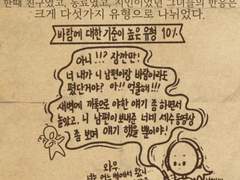 한때 친구였고, 동료였고, 지인이었던 그녀들의 반응은
크게 다섯가지 유형으로 나뉘었다.
바람에 대한 기준이 높은 유형 10%
아니!!? 잠깐만!
너 내가 니 남편이랑 바람이라도
폈단거야? 아!! 억울해!!!
새벽에 카톡으로 야한 얘기 좀 하면서
놀았고. 니 남편이 보내준 너네 섹스 동영상
좀 보며 얘기 했을 뿐이야!
와우